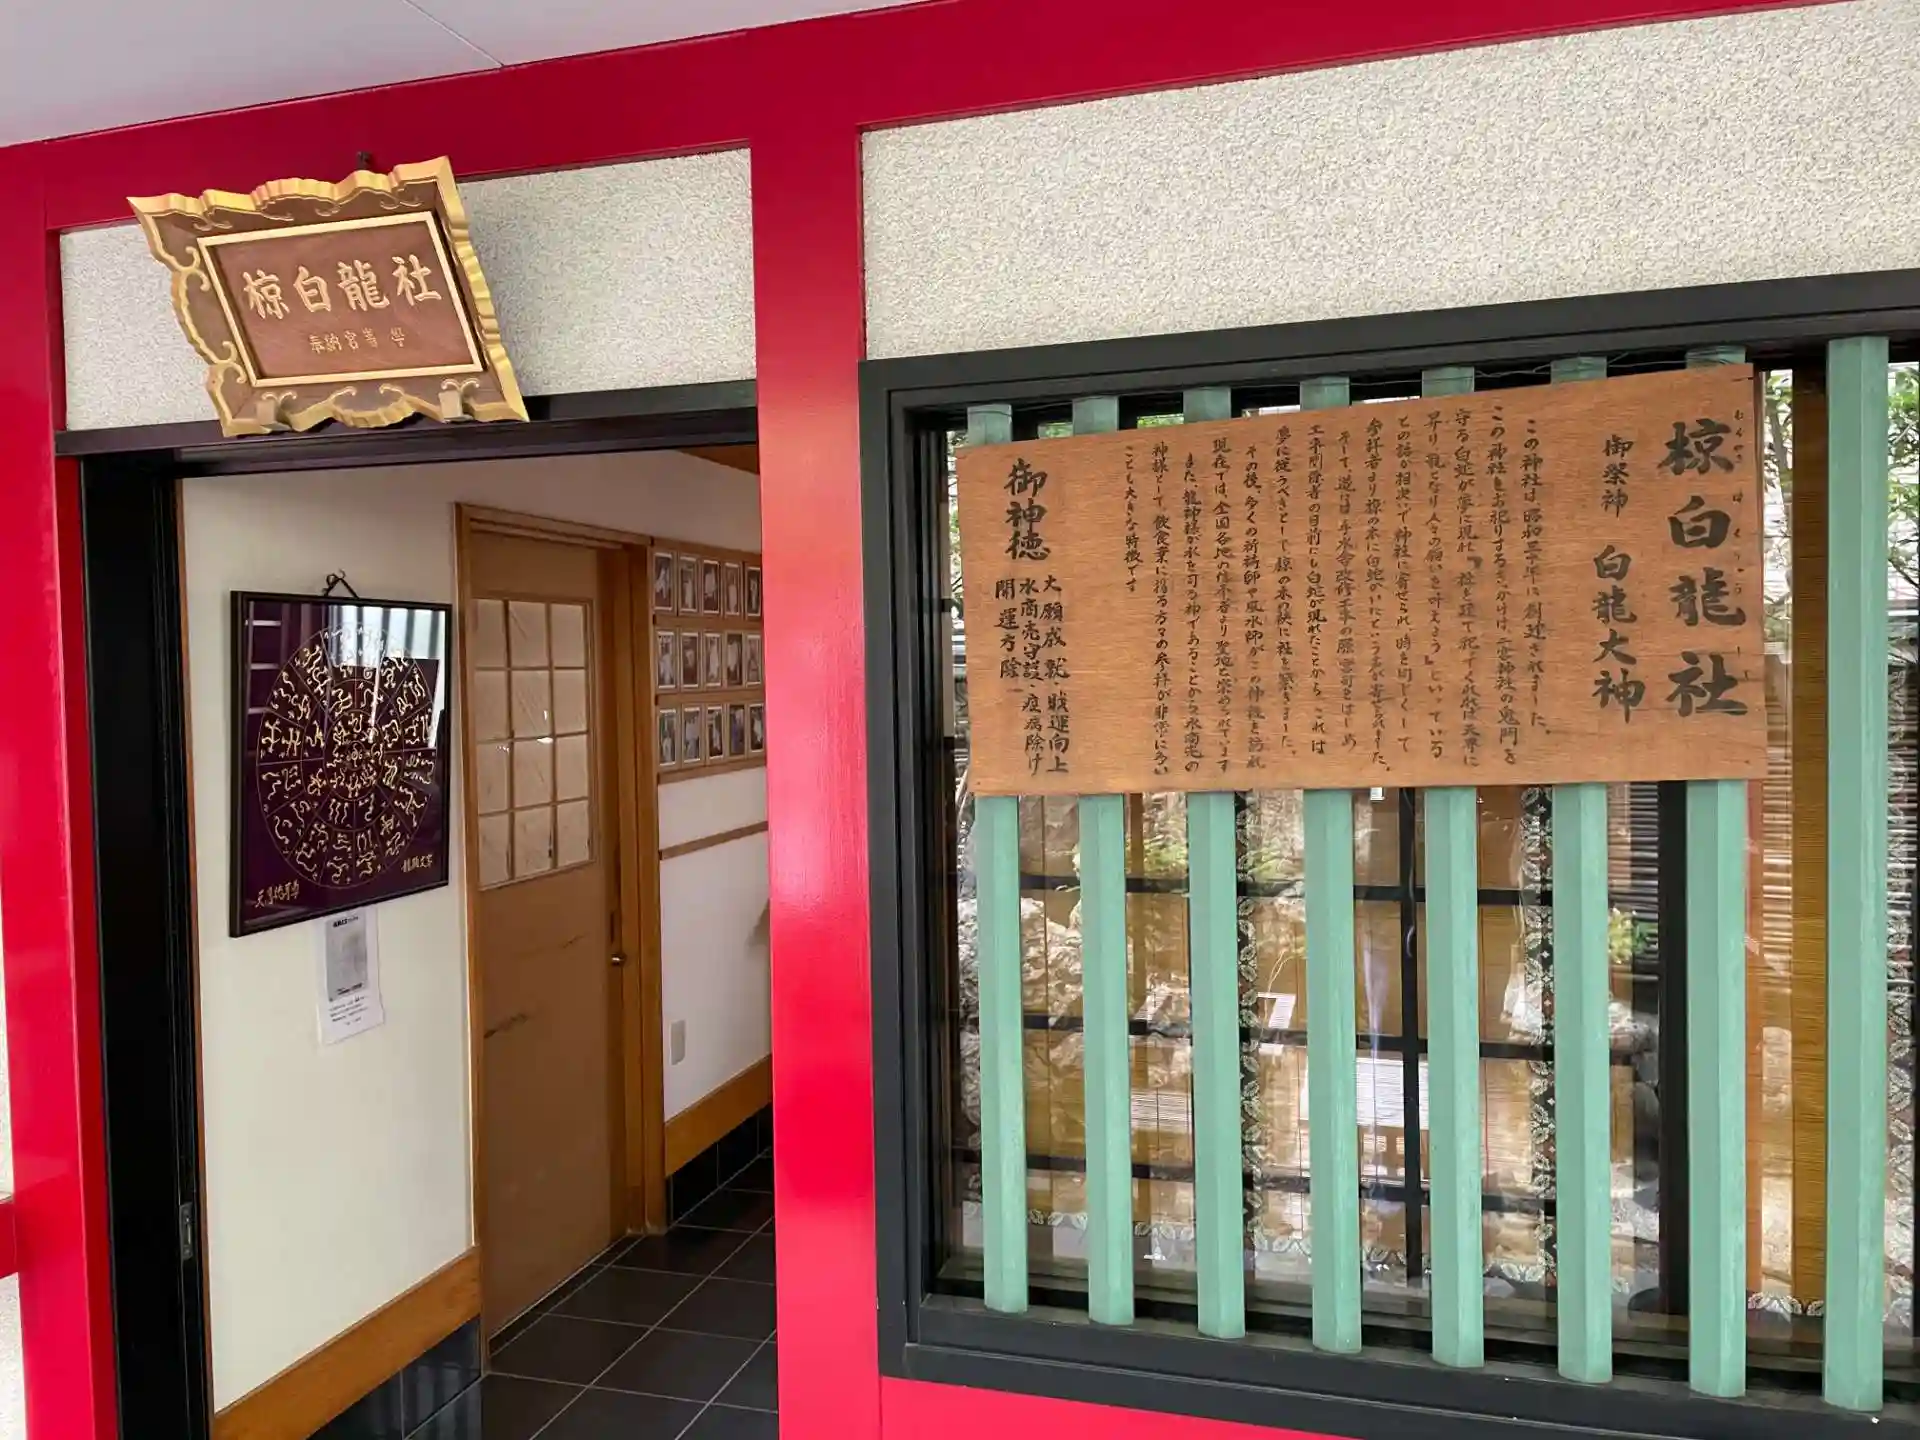 椋白龍社
奉納
椋白龍社
むくのき はくりゅう しゃ
御祭神 白龍大神
この神社は、昭和三十年に創建されました。
この神社をお祀りするきっかけは、二宮神社の鬼門を
守る白蛇が夢に現れ『社を建て祀ってくれれば天界に
昇り龍となり人々の願いを叶えよう』といっている
との話が相次いで神社に寄せられ、時を同じくして
参拝者より椋の木に白蛇がいたという声が寄せられました。
そして、遂には手水舎改修工事の際宮司をはじめ
工事関係者の目前にも白蛇が現れたことから、これは
夢に従うべきとして椋の木の横に社を築きました。
その後、多くの祈祷師や風水師がこの神社を訪れ
現在では、全国各地の信奉者より聖地と崇められています
また、龍神様が水を司る神であることから水商売の
神様として、飲食業に携る方々の参拝が非常に多い
ことも大きな特徴です
御神徳
大願成就・財運向上
水商売守護・疫病除け
開運方除
龍顕文字